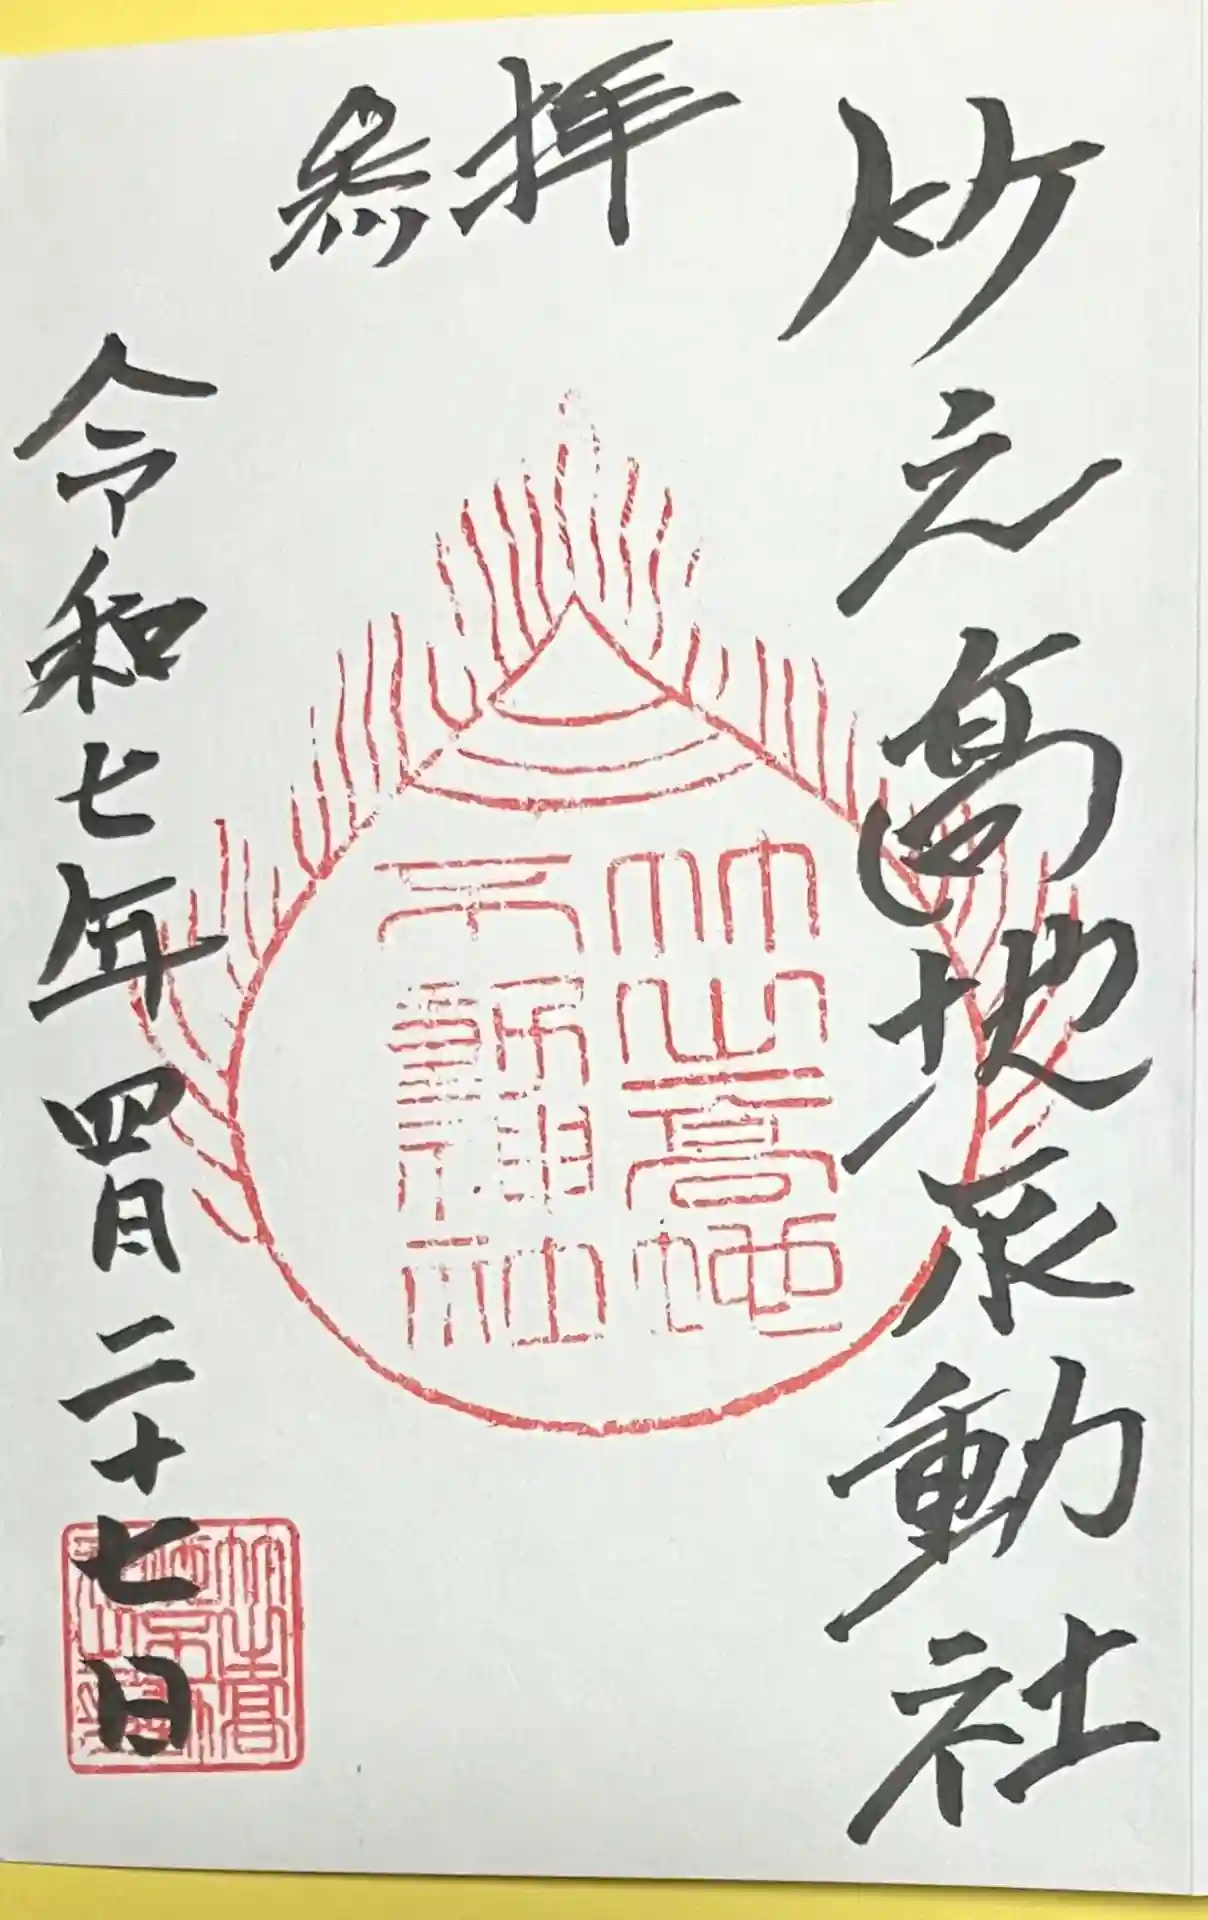 竹之高地不動社
拝参
竹之高地
令和七年四月二十七日
竹之高
地不動